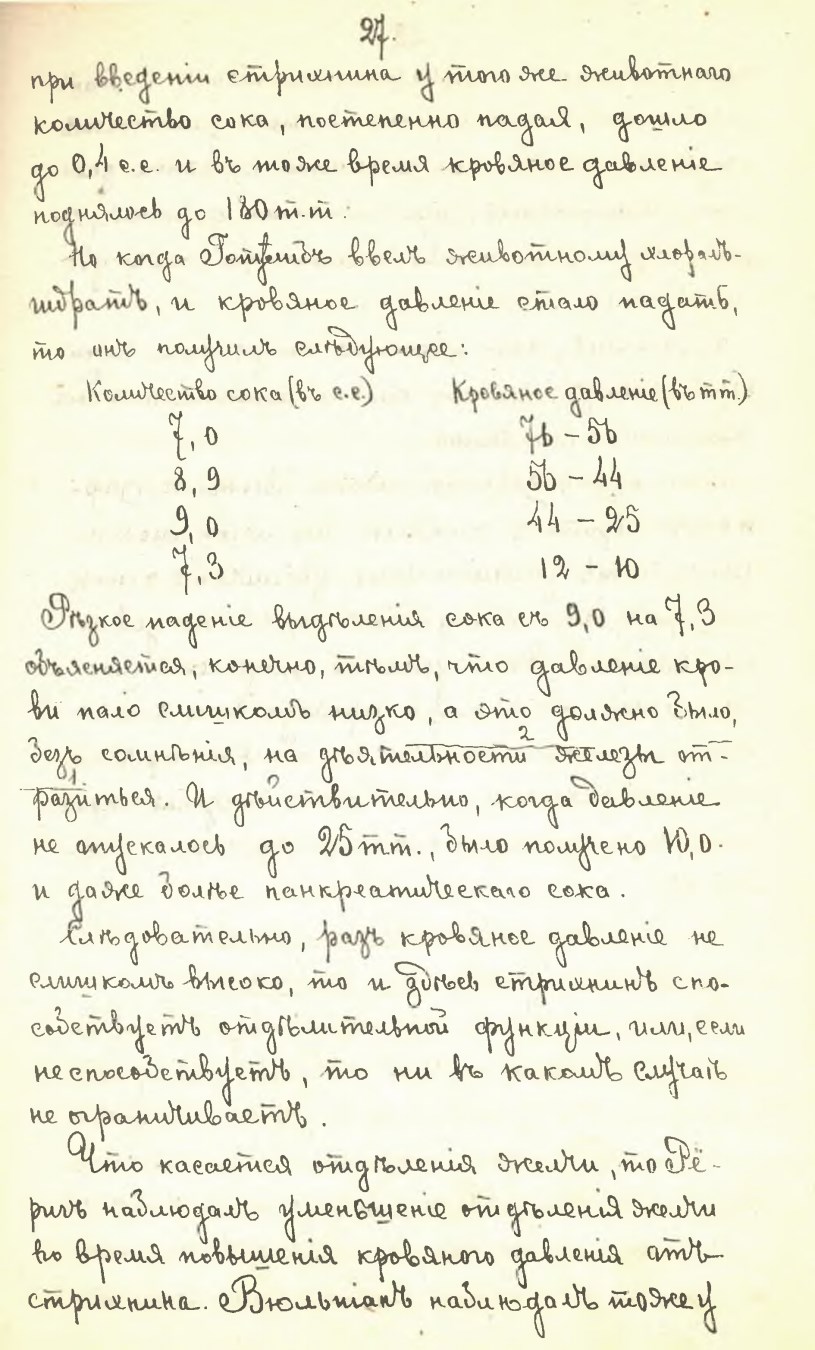 27.
при введеніи стрихнина у того же животнаго
количество сока, постепенно падая, дошло
до 0,4 с.с. и въ тоже время кровяное давленіе
поднялось до 180 m.m.
Но когда Готлибъ ввелъ животному хлорал-
гидратъ, и кровяное давленіе стало падать,
то онъ получилъ слѣдующее:
Количество сока (въ с.с.) Кровяное давленіе (въ mm.)
7,0 76 – 56
8,9 56 – 44
9,0 44 – 25
7,3 12 – 10
Рѣзкое паденіе выдѣленія сока съ 9,0 на 7,3
объясняется, конечно, тѣмъ, что давленіе кро-
ви пало слишкомъ низко, а это должно было,
безъ сомнѣнія, на дѣятельности 2 железы от-
разиться. 1 И дѣйствительно, когда давленіе
не опускалось до 25 mm., было получено 10,0.
и даже болѣе панкреатическаго сока.
Слѣдовательно, разъ кровяное давленіе не
слишкомъ высоко, то и здѣсь стрихнинъ спо-
собствуетъ отдѣлительной функціи, или, если
не способствуетъ, то ни въ какомъ случаѣ
не ограничиваетъ.
Что касается отдѣленія желчи, то Рё-
ригъ наблюдалъ уменьшеніе отдѣленія желчи
во время повышенія кровяного давленія отъ
стрихнина. Вюльпіанъ наблюдалъ тоже у